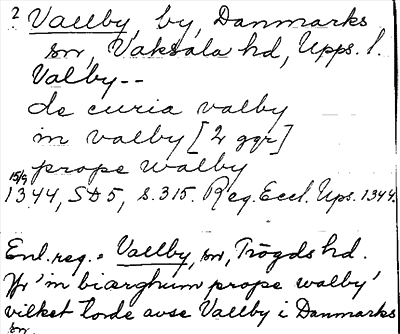 ? Vallby, by, Danmarks
sn, Vaksala hd, Upps. l.
Valby--
de curia valby
in valby [2 ggr]
prope walby
15/9 1344, SD5, s. 315. Reg. Eccl. Ups. 1344.
Enl. reg. = Vallby, sn, Trögds hd.
Jfr 'in biærghum prope walby'
vilket torde avse Vallby i Danmarks
sn.